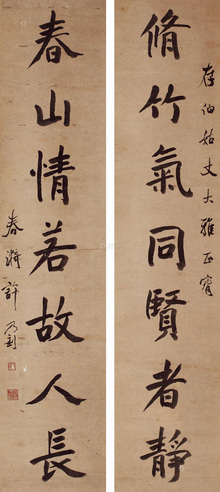 存伯丈大雅正
脩竹氣同賢者靜
春山情若故人長
春漪許乃釗